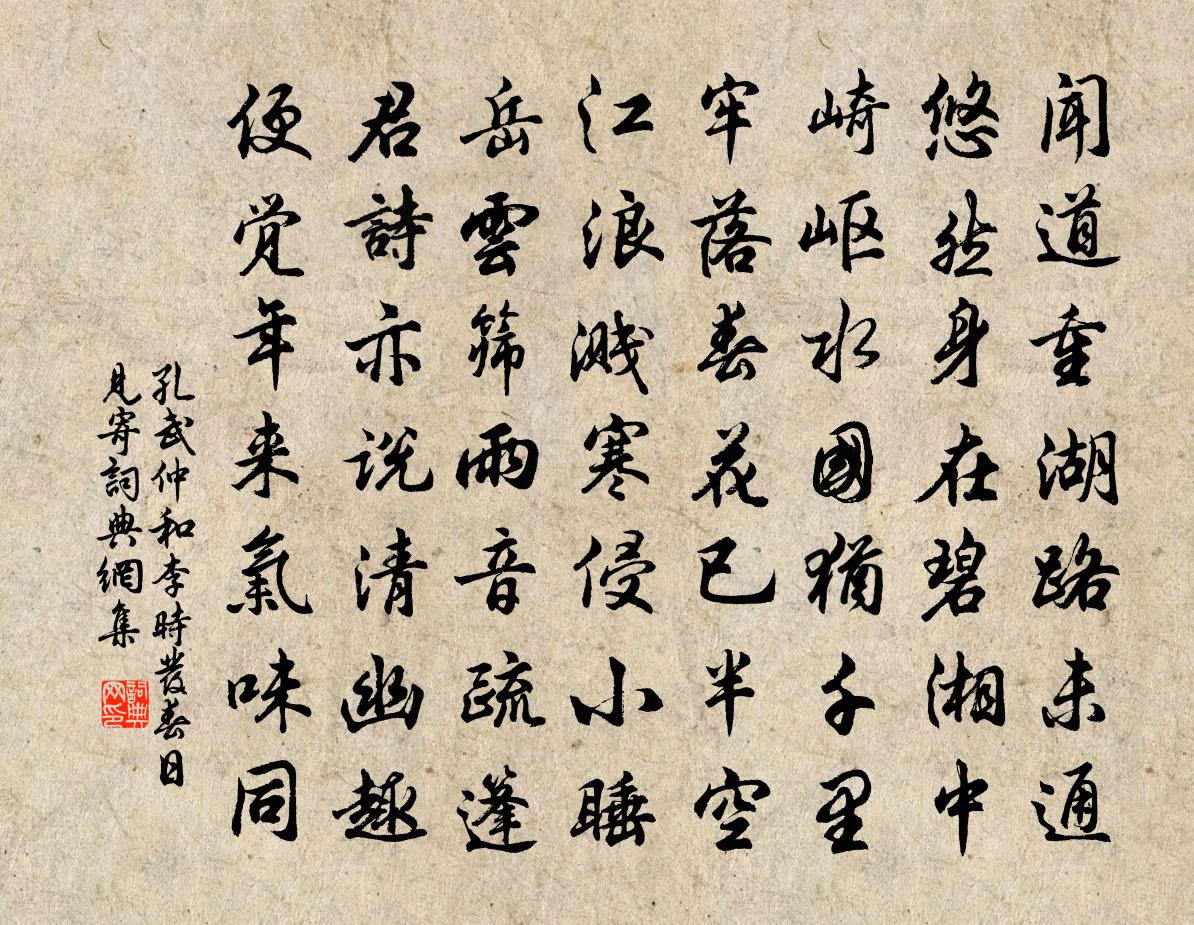 闻道重湖路未通
悠然身在碧湘中
崎岖水國猶千里
牢落春花已半空
江浪溅寒侵小睡
岳雲筛雨音疏蓬
君詩亦说清幽趣
便觉年来氣味同
孔武仲和李時發春日
見寄詞典網集
詞典网印